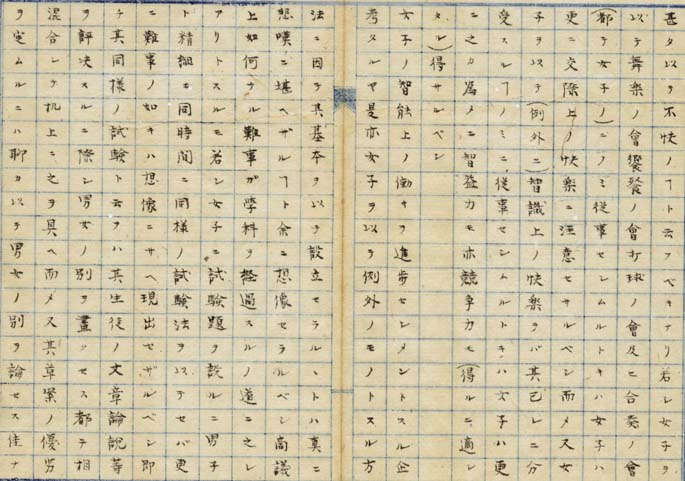 甚タ以テ不快ノヿト云フベキナリ若シ女子ヲ
以テ舞楽ノ會饗餐ノ會打球ノ會及ヒ合奏ノ會
(都テ女子ノ)ニノミ從事セシムルトキハ女子ハ
更ニ交際上ノ快樂ニ注意セサルベシ而メ又女
子ヲ以テ(例外ニ)智識上ノ快樂ヲバ其己レニ分
受スルヿノミニ從事セシムルトキハ女子ハ更
ニ之カ為メニ智益カモ亦競爭カモ(得ルニ適シ
タル)得サルベシ
女子ノ智能上ノ働キヲ進歩セシメントスル企
考タルヤ是亦女子ヲ以テ例外ノモノトスル方
法ニ因テ其基本ヲ以テ設立セラルヽトハ真ニ
悲嘆ニ堪ヘザルヿト余ニ想像セラルベシ高議
上如何ナル難事ガ學科ヲ経過スルノ道ニ之レ
アリトスルモ若シ女子ニ試験題ヲ設ルニ男子
ト精細ニ同時間ニ同様ノ試験法ヲ以テセバ更
ニ難事ノ如キハ想像ニサヘ現出セザルベシ即
チ其同様ノ試験ト云ヲハ其生徒ノ文章論説等
ヲ評決スルニ際シ男女ノ別ヲ畫ッセス都テ相
混合シテ机上ニ之ヲ具ヘ而メ又其草案ノ優劣
ヲ定ムルニハ聊カ以テ男女ノ別ヲ論セス佳ナ